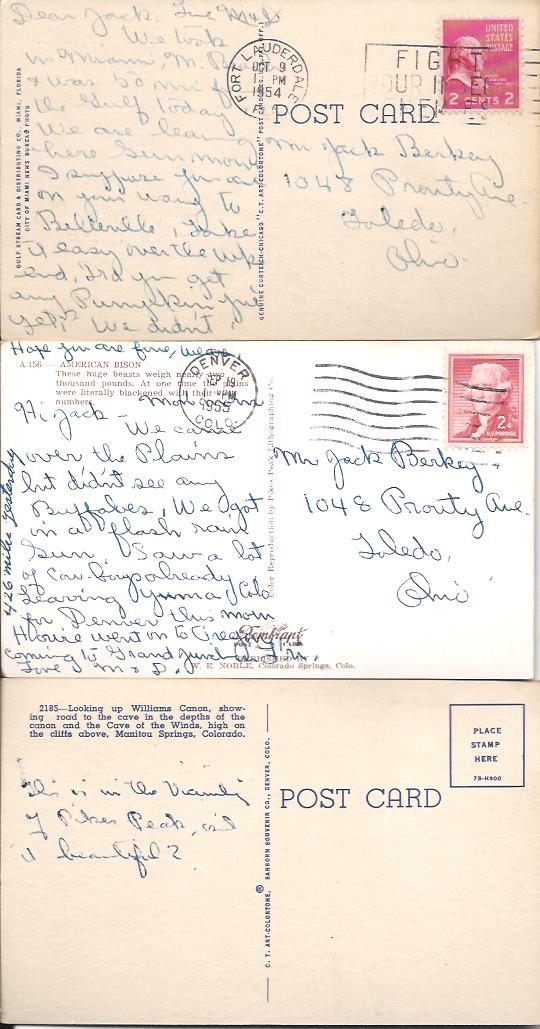 Dear Jack, Love M & D
We took
in Miami, M. Beach
& was 50 mi of
the Gulf today
We are leaving
here Sun. morn
I suppose you are
on your way to
Belleville, Take
it easy over the wk
end, Did you get
any Pumpkin pie
yet? We didn't.
GULF STREAM CARD & DISTRIBUTING CO., MIAMI, FLORIDA
CITY OF MIAMI NEWS BUREAU PHOTO
GENUINE CURTEICH-CHICAGO "C. T. ART-COLORTONE" POST CARD (REG. U.S. PAT. OFF.)
FORT LAUDERDALE
OCT 9
PM
1954
FIGHT
UNITED
STATES
POSTAGE
2 CENTS 2
POST CARD
Mr Jack Berkey
1048 Prouty Ave.
Toledo,
Ohio
Hope you are fine, we are!
A 156 — AMERICAN BISON
These huge beasts weigh nearly two
thousand pounds. At one time the plains
were literally blackened with their
numbers.
Hi Jack – Mon morn
We came
over the Plains
but didn't see any
Buffaloes, We got
in a flash rain
Sun, Saw a lot
of Cow-boys already
Leaving Yuma, Colo
for Denver this morn
coming to Grand Junction
Love M & D.
426 miles yesterday
Color Reproduction by Pikes Peak Lithographing Co.
DENVER
19
PM
1955
COLO.
2¢
U.S. POSTAGE
Mr Jack Berkey
1048 Prouty Ave.
Toledo,
Ohio
Rembrant
POST CARD
W. E. NOBLE, Colorado Springs, Colo.
2185—Looking up Williams Canon, show-
ing road to the cave in the depths of the
canon and the Cave of the Winds, high on
the cliffs above, Manitou Springs, Colorado.
This is in the Vicinity
of Pikes Peak, isn't
it beautiful?
C. T. ART-COLORTONE, ® SANBORN SOUVENIR CO., DENVER, COLO.
POST CARD
PLACE
STAMP
HERE
7B-H900